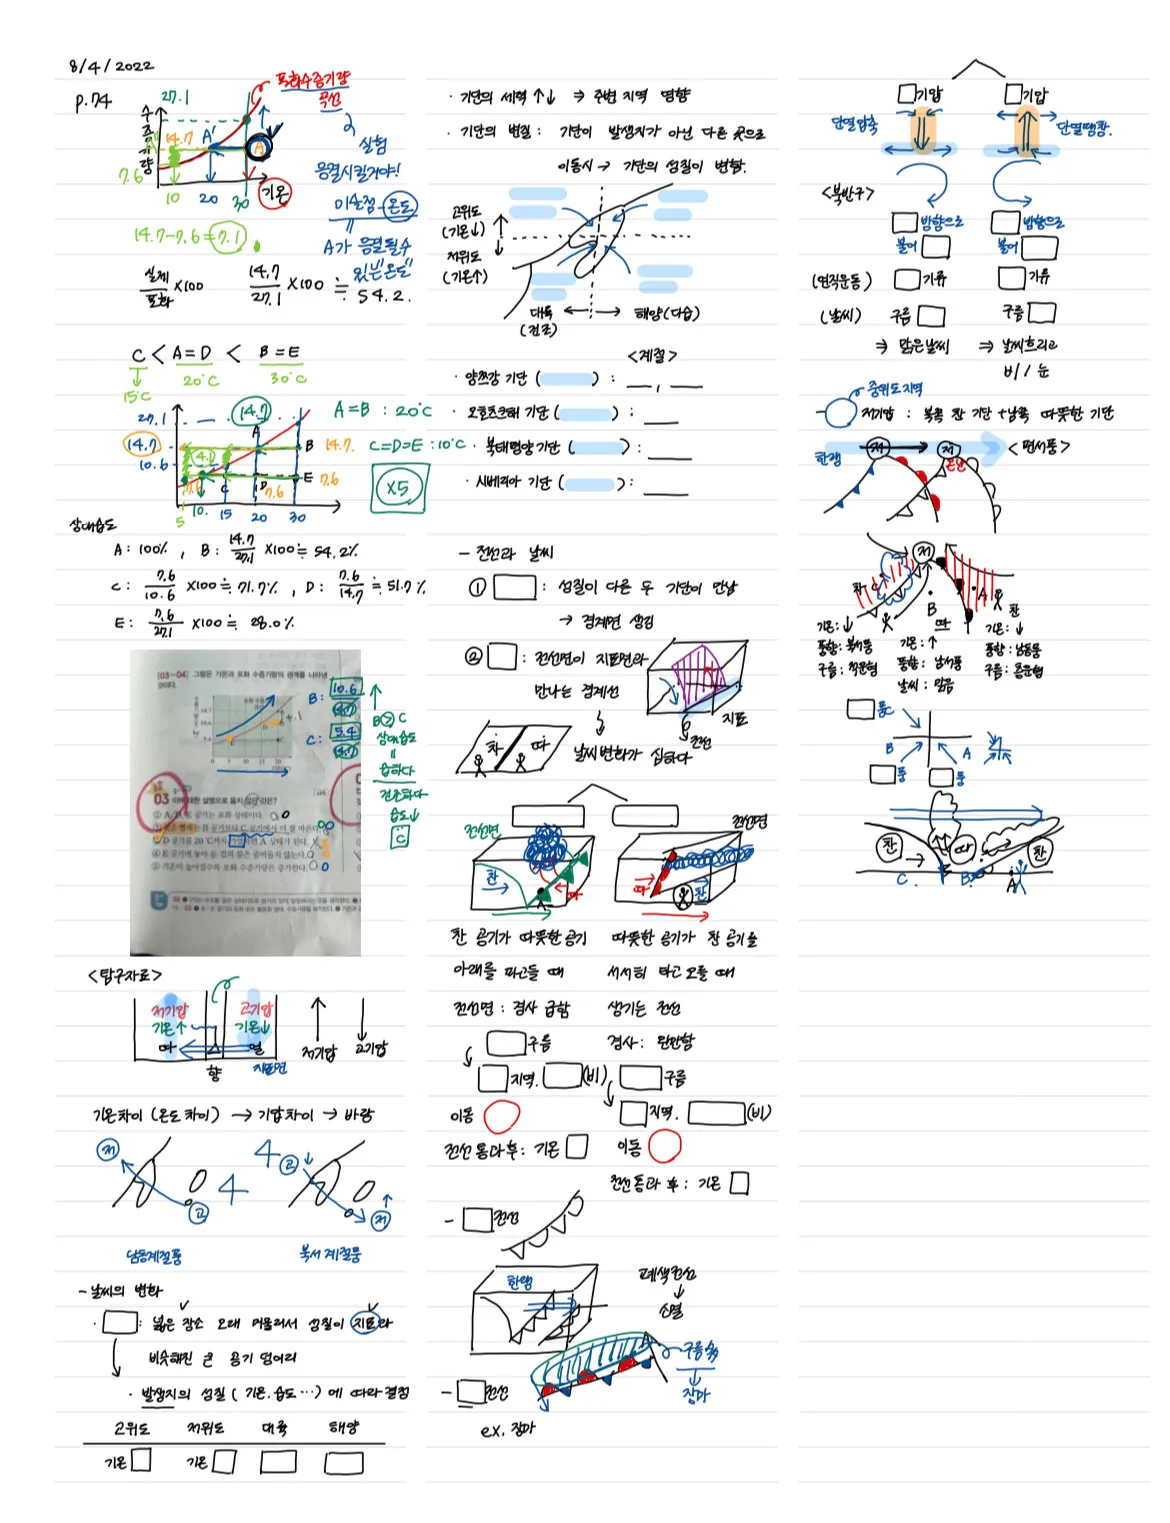 8/4/2022
P.74
27.1
포화수증기량
곡선
수
증
기
량
14.7
A'
A
7.6
10
20
30
기온
실험
응결시킬거야!
이슬점-온도
=
A가 응결될 수
있는 "온도"
14.7-7.6=7.1
실제
포화
×100
14.7
27.1
×100 ≒ 54.2.
C < A=D < B=E
15℃
20℃
30℃
27.1
14.7
A
14.7
B
14.7.
10.6
C
D
7.6
E
7.6
5
10.
15
20
30
A=B : 20℃
C=D=E : 10℃
×5
상대습도
A: 100% , B: 14.7/27.1 ×100≒ 54.2%
C: 7.6/10.6 ×100≒ 71.7% , D: 7.6/14.7 ≒ 51.7%
E: 7.6/27.1 ×100≒ 28.0%
[03~04] 그림은 기온과 포화 수증기량의 관계를 나타낸
것이다.
B: 10.6
14.7
C: 5.4
14.7
B>C
상대습도
=
습하다
건조하다
습도↓
C
03
② B 공기보다 C 공기에서 더 잘 마른다.
⑤ 기온이 높아질수록 포화 수증기량은 증가한다.
<탐구자료>
저기압
고기압
기온↑
기온↓
따
열
향
지표면
저기압
고기압
기온차이 (온도차이) → 기압차이 → 바람
저
고
4
4
고
저
남동계절풍
북서계절풍
- 날씨의 변화
· □ : 넓은 장소 오래 머물러서 성질이 지표와
비슷해진 큰 공기 덩어리
· 발생지의 성질 (기온, 습도…)에 따라 결정
고위도 저위도 대륙 해양
기온 □ 기온 □ □ □
· 기단의 세력 ↑↓ ⇒ 주변 지역 영향
· 기단의 변질 : 기단이 발생지가 아닌 다른 곳으로
이동시 → 기단의 성질이 변함.
고위도
(기온↓)
저위도
(기온↑)
대륙 ← → 해양(다습)
(건조)
<계절>
· 양쯔강 기단 ( ) : __ , __
· 오호츠크해 기단 ( ) : __
· 북태평양 기단 ( ) : __
· 시베리아 기단 ( ) : __
- 전선과 날씨
① □ : 성질이 다른 두 기단이 만남
→ 경계면 생김
② □ : 전선면이 지표면과
만나는 경계선
지표
전선
차
따
날씨변화가 심하다
전선면
전선면
찬
따
따
찬
찬 공기가 따뜻한 공기
아래를 파고들 때
전선면 : 경사 급함
□ 구름
□ 지역. □ (비)
이동 ○
전선 통과 후 : 기온 □
따뜻한 공기가 찬 공기를
서서히 타고 오를 때
생기는 전선
경사 : 완만함
□ 구름
□ 지역. □ (비)
이동 ○
전선 통과 후 : 기온 □
- □ 전선
한랭
폐색전선
↓
소멸
- □ 전선
구름多
장마
ex. 장마
□기압
□기압
단열압축
단열팽창.
<북반구>
□ 방향으로
불어 □
□ 방향으로
불어 □
(연직운동) □ 기류 □ 기류
(날씨) 구름 □ 구름 □
⇒ 맑은날씨
⇒ 날씨흐리고
비/눈
중위도지역
○ 저기압 : 북쪽 찬 기단 + 남쪽 따뜻한 기단
한랭
저
저
온난
<편서풍>
저
찬
C
B
따
A
찬
기온:↓
풍향: 북서풍
구름: 적운형
기온: ↑
풍향: 남서풍
날씨: 맑음
기온:↓
풍향: 남동풍
구름: 층운형
□풍
C
B
A
□풍
□풍
찬
따
찬
C.
B.
A